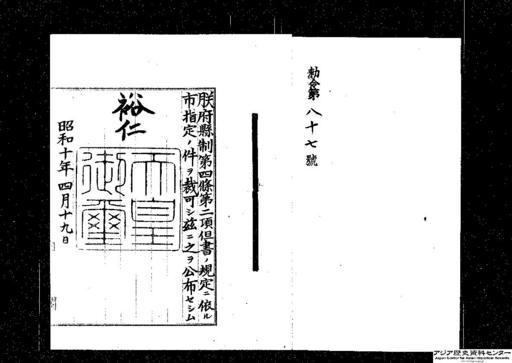 勅令第八十七號
朕府縣制第四條第二項但書ノ規定ニ依ル
市指定ノ件ヲ裁可シ茲ニ之ヲ公布セシム
裕仁
天皇
御璽
昭和十年四月十九日
アジア歴史資料センター
Japan Center for Asian Historical Records